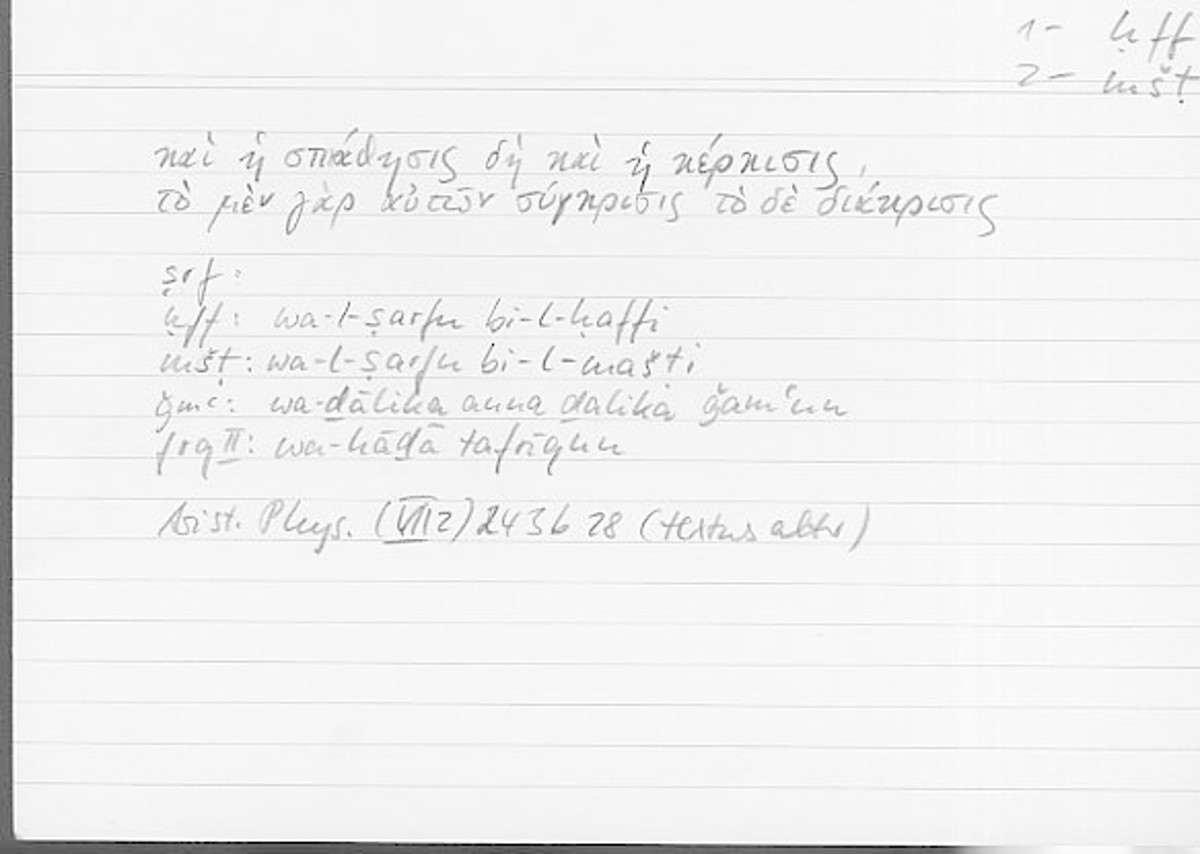 1- ḥff
2- mšṭ
καὶ ἡ σπάθησις δὴ καὶ ἡ κέρκισις,
τὸ μὲν γὰρ αὐτῶν σύγκρισις τὸ δὲ διάκρισις
ṣrf:
ḥff: wa-l-ṣarfu bi-l-ḥaffi
mšṭ: wa-l-ṣarfu bi-l-mašti
ǧmʿ: wa-ḏālika anna ḏalika ǧamʿun
frq II: wa-hāḏā tafrīqun
Arist. Phys. (VII 2) 243 b 28 (textus alter)